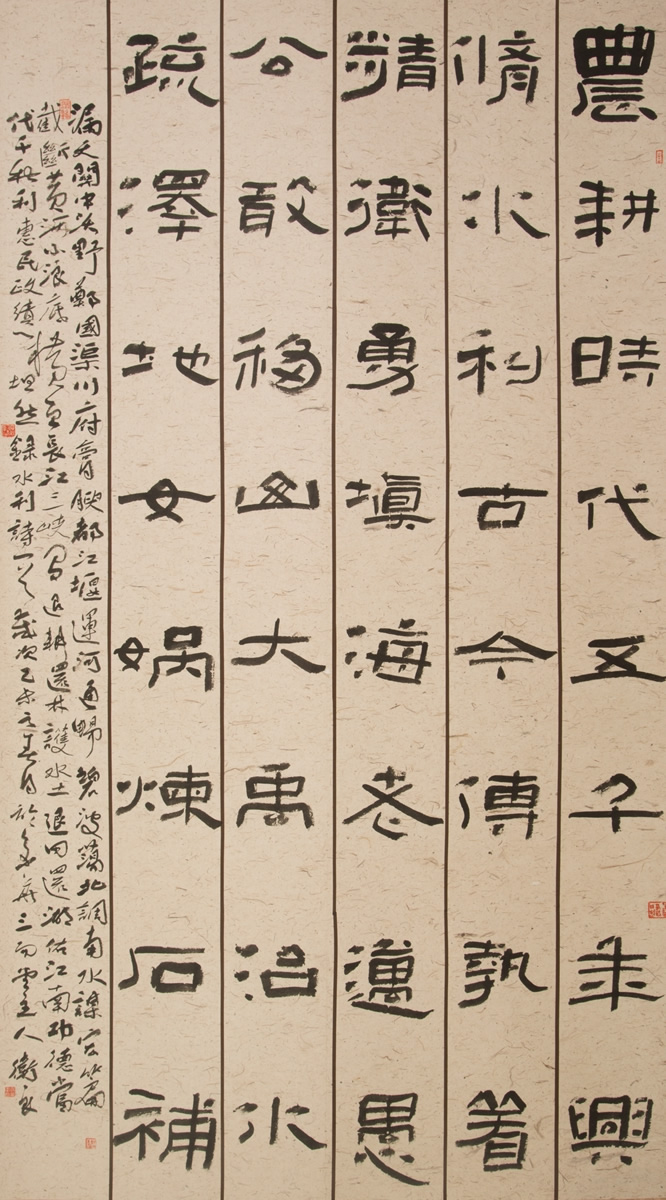 農耕時代五千年興
脩水利古今傳執着
精衛勇填海老邁愚
公敢移山大禹治水
疏澤地女媧煉石補
漏天關中沃野鄭國渠川府膏腴都江堰運河通暢碧波蕩北調南水譜宏篇
截斷黃河小浪底橫亘長江三峽間退耕還林護水土退田還湖佑江南功德當
代千秋利惠民政績人稱坦然錄水利詩一首歲次乙未之春月於京華三堂主人衛良